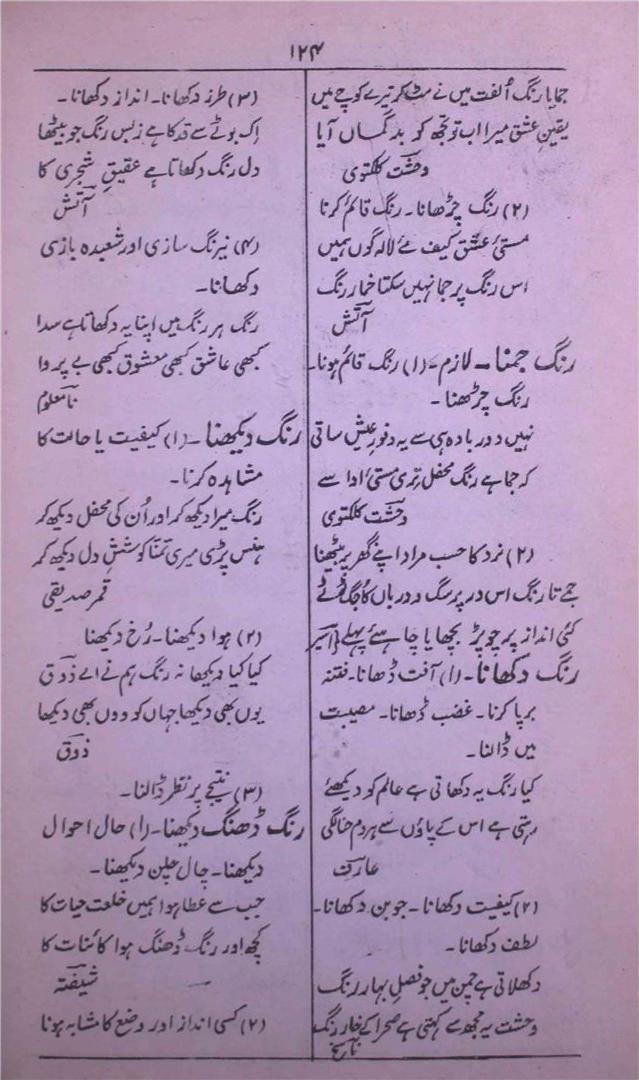 ۱۲۴
جمایا رنگ اُلفت میں نے مٹ کر تیرے کوچے میں
یقینِ عشق میرا اب تو تجھ کو بدگماں آیا
وحشت کلکتوی
(۲) رنگ چڑھانا۔ رنگ قائم کرنا
مستیٔ عشق کیف مے لالہ گوں ہمیں
اس رنگ پر جما نہیں سکتا خمار رنگ
آتش
رنگ جمنا۔ لازم۔ (۱) رنگ قائم ہونا۔
رنگ چڑھنا۔
نہیں دورِ بادہ ہی سے یہ وفورِ عیش ساقی
کہ جما ہے رنگ محفل تری مستیٔ ادا سے
وحشت کلکتوی
(۲) نرد کا حسب مراد اپنے گھر پر بیٹھنا
جمے تا رنگ اس در پر سگ و درباں کا جگ ٹوٹے
کئی انداز پر چوپڑ بچھایا چاہئے پہلے (اسیر
رنگ دکھانا۔ (۱) آفت ڈھانا۔ فتنہ
برپا کرنا۔ غضب ڈھانا۔ مصیبت
میں ڈالنا۔
کیا رنگ یہ دکھاتی ہے عالم کو دیکھئے
رہتی ہے اس کے پاؤں سے ہر دم حنا لگی
عارف
(۲) کیفیت دکھانا۔ جوبن دکھانا۔
لطف دکھانا۔
دکھلاتی ہے چمن میں جو فصلِ بہار رنگ
وحشت یہ مجھ سے کہتی ہے صحرا کے خار رنگ
ناسخ
(۳) طرز دکھانا۔ انداز دکھانا۔
اِک بوٹے سے قد کا ہے زبس رنگ جو بیٹھا
دل رنگ دکھاتا ہے عقیقِ شجری کا
آتش
(۴) نیرنگ سازی اور شعبدہ بازی
دکھانا۔
رنگ ہر رنگ میں اپنا یہ دکھاتا ہے سدا
کبھی عاشق کبھی معشوق کبھی بے پروا
نامعلوم
رنگ دیکھنا۔ (۱) کیفیت یا حالت کا
مشاہدہ کرنا۔
رنگ میرا دیکھ کر اور اُن کی محفل دیکھ کر
ہنس پڑی میری تمنا کوششِ دل دیکھ کر
قمر صدیقی
(۲) ہوا دیکھنا۔ رُخ دیکھنا
کیا کیا نہ دیکھا رنگ ہم نے اے ذوق
یوں بھی دیکھا جہاں کو ووں بھی دیکھا
ذوق
(۳) نتیجے پر نظر ڈالنا۔
رنگ ڈھنگ دیکھنا۔ (۱) حال احوال
دیکھنا۔ چال چلن دیکھنا۔
جب سے عطا ہوا ہمیں خلعت حیات کا
کچھ اور رنگ ڈھنگ ہوا کائنات کا
شیفتہ
(۲) کسی انداز اور وضع کا مشابہ ہونا